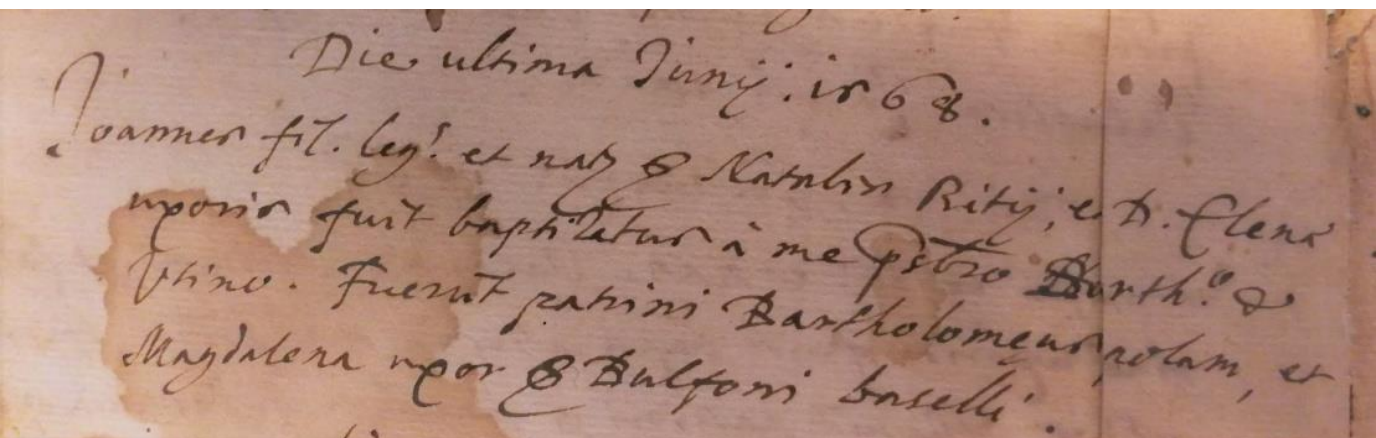 Die ultima Junij. 1568.
Joannes fil. leg.s et nat9 Natalis Ritij, et D. Elena
uxoris fuit baptizatus à me pstro Barth.o de
Utino. Fuerut patrini Bartholomeus polam, et
Magdalena uxor Bulfoni baselli.